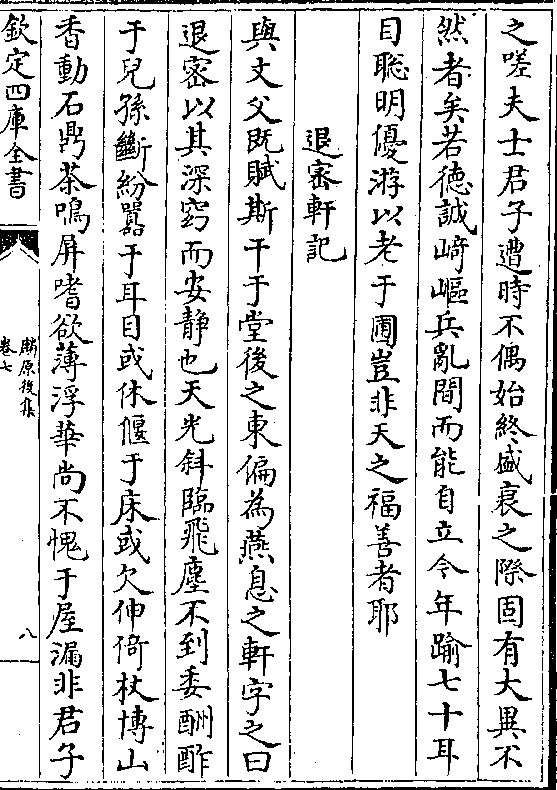 之嗟夫士君子遭時不偶始終盛衰之際固有大異不
然者矣若徳誠﨑嶇兵亂間而能自立今年踰七十耳
目聡明優游以老于圃豈非天之福善者耶
退密軒記
與丈父既賦斯干于堂後之東偏為燕息之軒字之曰
退密以其深窈而安静也天光斜臨飛塵不到委酬酢
于兒孫斷紛囂于耳目或休偃于床或欠伸倚杖博山
香動石鼎茶鳴屏嗜欲薄浮華尚不愧于屋漏非君子
欽定四庫全書
麟原後集
卷七
八